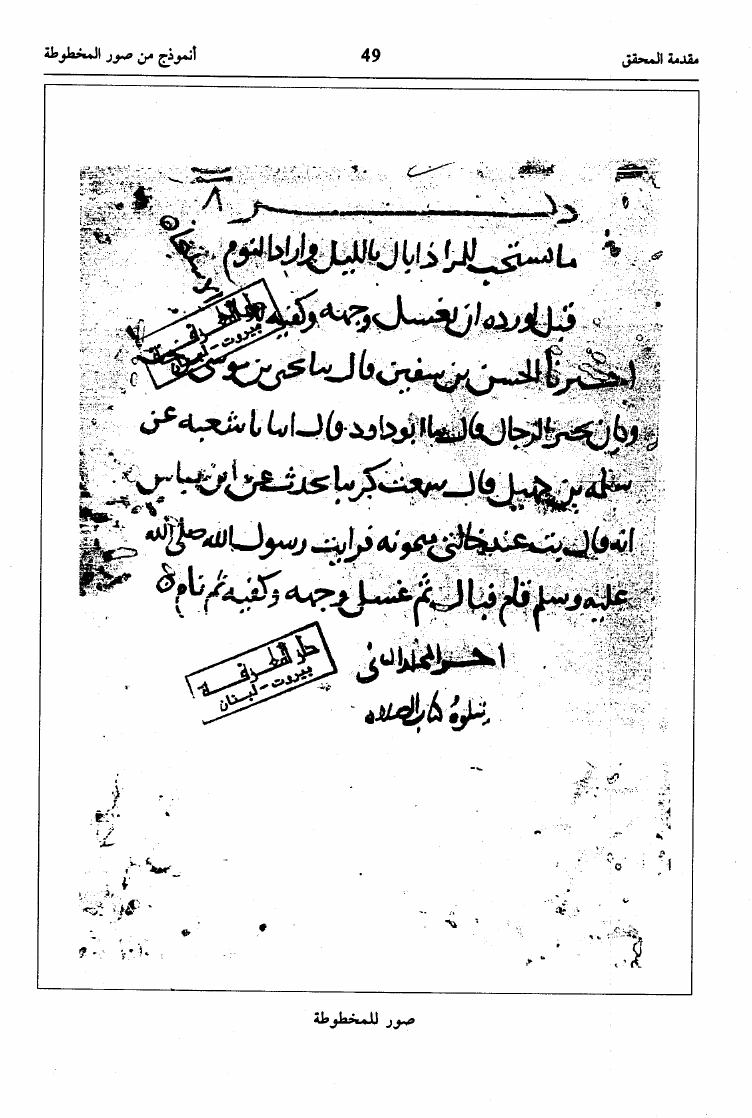 مقدمة المحقق 49 أنموذج من صور المخطوطة
ذكر ٨
ما يستحب للمرا ذا بال بالليل واراد النوم
قبل ورده ان يغسل وجهه وكفيه
اخبرنا الحسن بن سفين قال سا يحيى بن موسى
وكان يحير الرجال قال سا ابو داود قال اسا با شعبه عن
سلمه بن كهيل قال سمعت كريبا يحدث عن ابن عباس
انه قال بت عند خالتي ميمونه فرايت رسول الله صلى الله
عليه وسلم قام فبال ثم غسل وجهه وكفيه ثم نام
اخر المجلد الثاني
يتلوه كتاب الصلاه
دار المعرفة
بيروت - لبنان
دار المعرفة
بيروت - لبنان
صور للمخطوطة